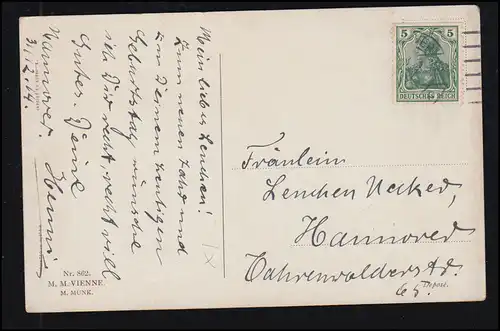 Mein liebes Lenchen!
Zum neuen Jahr und
zu Deinem heutigen
Geburtstag wünsche
ich Dir recht recht viel
Gutes. Deine
Henni
Hannover.
31.12.04.
Nr. 862.
M. M. VIENNE.
M. MUNK.
5 5
DEUTSCHES REICH
Fräulein
Lenchen Necker,
Hannover
Vahrenwalderstr.
65.
Déposé.